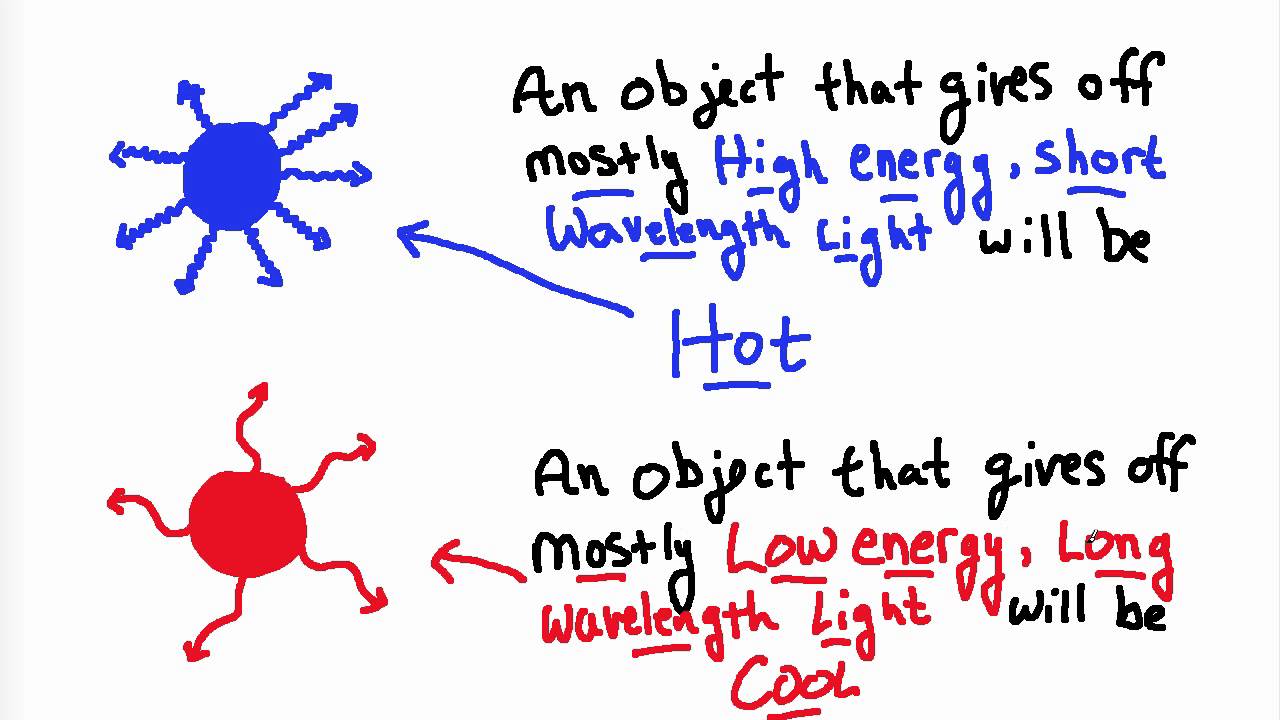 An object that gives off
mostly High energy, short
Wavelength Light will be
Hot
An object that gives off
mostly Low energy, Long
wavelength Light will be
Cool